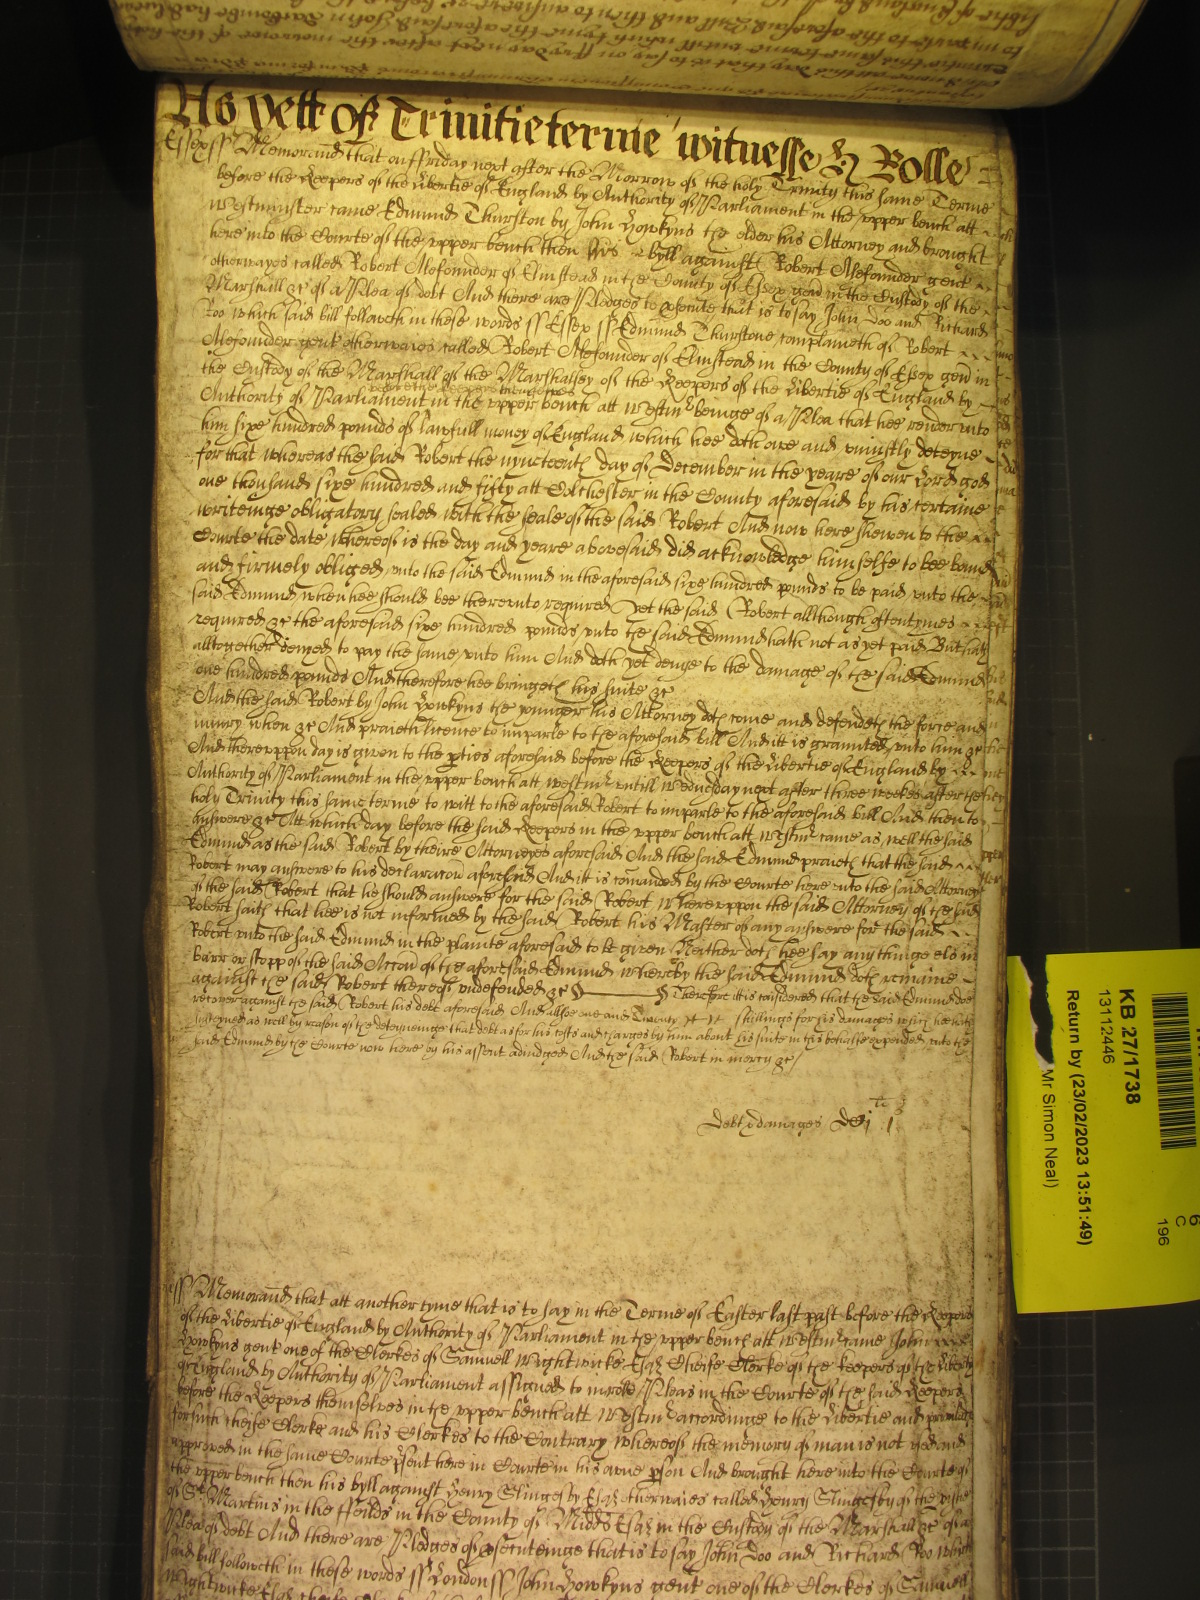 As yett of Trinitie terme witnesse H Rolle
Essex ss Memorand that on ffriday next after the Morrow of the holy Trinity this same Terme
before the Keepers of the Libertie of England by Authority of Parliament in the upper bench att
Westminster came Edmund Thurston by John Howkyns the elder his Attorney and brought
here into the Courte of the upper bench then his byll against Robert Alefounder gent
otherwayes called Robert Alefounder of Elmstead in the County of Essex gent in the Custody of the
Marshall &c of a Plea of debt And there are Pledges to psecute that is to say John Doo and Richard
Roo which said bill followeth in these words ss Essex ss Edmund Thurstone complaineth of Robert
Alefounder gent otherwaies called Robert Alefounder of Elmstead in the County of Essex gent in
the Custody of the Marshall of the Marshalsey of the Keepers of the Libertie of England by
before the Keepers themselves
Authority of Parliament in the upper bench att Westmr beinge of a Plea that hee render unto
him sixe hundred pounds of lawfull money of England which hee doth owe and uniustly deteyne
for that whereas the said Robert the nyneteenth day of December in the yeare of our Lord god
one thousand sixe hundred and fifty att Colchester in the County aforesaid by his certaine
writeinge obligatory sealed with the seale of the said Robert And now here shewen to the
Courte the date whereof is the day and yeare abovesaid did acknowledge himselfe to bee bound
and firmely obliged unto the said Edmund in the aforesaid sixe hundred pounds to be paid unto the
said Edmund when hee should bee thereunto required Yet the said Robert allthough oftentymes
required &c the aforesaid sixe hundred pounds unto the said Edmund hath not as yet paid But hath
alltogether denyed to pay the same unto him And doth yet denye to the damage of the said Edmund
one hundred pounds And therefore hee bringeth his suite &c
And the said Robert by John Howkyns the younger his Attorney doth come and defendeth the force and
iniury when &c And praieth licence to imparle to the aforesaid bill And itt is graunted unto him &c
And thereuppon day is given to the pties aforesaid before the Keepers of the Libertie of England by
Authority of Parliament in the upper bench att Westmr untill Wednesday next after three weekes after the
holy Trinity this same terme to witt to the aforesaid Robert to imparle to the aforesaid bill And then to
answere &c Att which day before the said Keepers in the upper bench att Westmr came as well the said
Edmund as the said Robert by theire Attorneyes aforesaid And the said Edmund praieth that the said
Robert may answere to his declaracon aforesaid And itt is comanded by the Courte here unto the said Attorney
of the said Robert that he should answere for the said Robert Whereuppon the said Attorney of the said
Robert saith that hee is not informed by the said Robert his Master of any answere for the said
Robert unto the said Edmund in the plainte aforesaid to be given Neither doth hee say any thinge els in
barr or stopp of the said Accon of the aforesaid Edmund Whereby the said Edmund doth remaine
against the said Robert thereof undefended &c Therefore itt is considered that the said Edmund doe
recover against the said Robert his debt aforesaid And allsoe one and Twenty shillings for his damages which hee hath
susteyned as well by reason of the deteyneinge that debt as for his costs and charges by him about his suite in this behalfe expended unto the
said Edmund by the Courte now here by his assent adiudged And the said Robert in mercy &c
Debt & damages
ss Memorand that att another tyme that is to say in the Terme of Easter last past before the Keepers
of the Libertie of England by Authority of Parliament in the upper bench att Westmr came John
Howkyns gent one of the Clerkes of Samuell Wightwicke Esqr Cheife Clerke of the keepers of the Liberty
of England by Authority of Parliament assigned to inrolle Pleas in the Courte of the said Keepers
before the Keepers themselves in the upper bench att Westmr accordinge to the Libertie and priviledge
for such cheife Clerke and his Clerkes to the Contrary whereof the memory of man is not
approved in the same Courte psent here in Courte in his owne pson And brought here into the Courte of
the upper bench then his byll against Henry Slingesby Esqr otherwaies called Henry Slingesby of the
of St Martins in the ffeilds in the County of Midds Esqr in the Custody of the Marshall &c of a
Plea of debt And there are Pledges of psecuteinge that is to say John Doo and Richard Roo which
said bill followeth in these words ss London ss John Howkyns gent one of the Clerkes of Samuell
KB 27/1738
13112446
Return by (23/02/2023 13:51:49)
Mr Simon Neal)
6
C
196